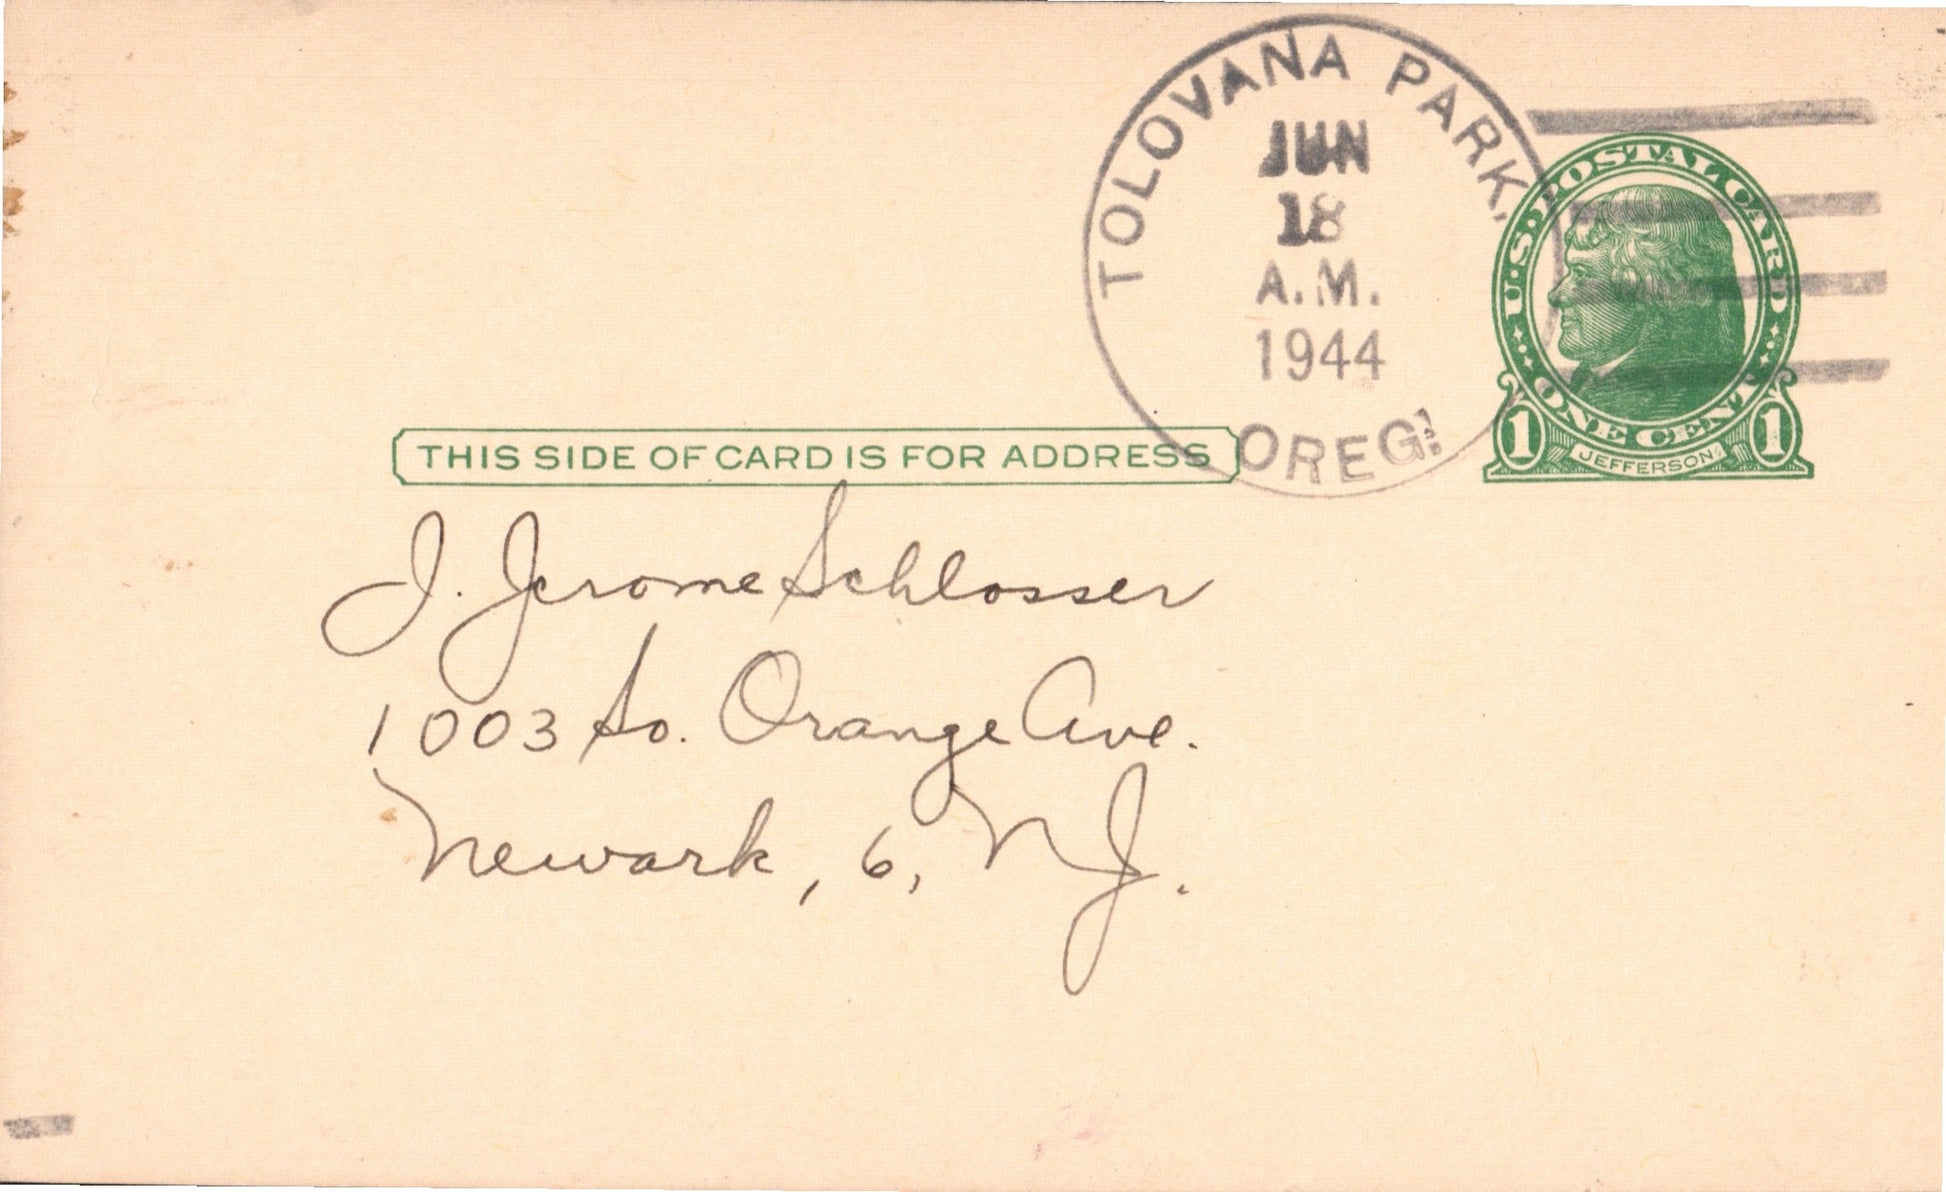 TOLOVANA PARK,
JUN
18
A.M.
1944
OREG.
U.S. POSTAL CARD
ONE CENT
1 1
JEFFERSON
THIS SIDE OF CARD IS FOR ADDRESS
J. Jerome Schlosser
1003 So. Orange Ave.
Newark, 6, N.J.